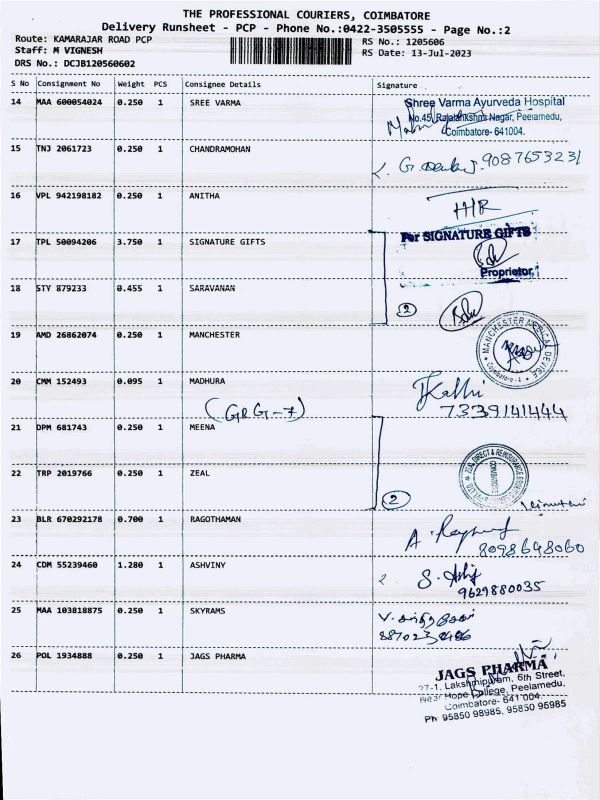 THE PROFESSIONAL COURIERS, COIMBATORE
Delivery Runsheet - PCP - Phone No.:0422-3505555 - Page No.:2
Route: KAMARAJAR ROAD PCP
RS No.: 1205606
Staff: M VIGNESH
RS Date: 13-Jul-2023
DRS No.: DCJB120560602
S No Consignment No Weight PCS Consignee Details Signature
14 MAA 600054024 0.250 1 SREE VARMA
Shree Varma Ayurveda Hospital
No.45, Rajalakshmi Nagar, Peelamedu,
Coimbatore- 641004.
15 TNJ 2061723 0.250 1 CHANDRAMOHAN
9087653231
16 VPL 942198182 0.250 1 ANITHA
H/R
17 TPL 50094206 3.750 1 SIGNATURE GIFTS
For SIGNATURE GIFTS
Proprietor
18 STY 879233 0.455 1 SARAVANAN
2
19 AMD 26862074 0.250 1 MANCHESTER
MANCHESTER MEDICAL DEVICE
Coimbatore-4
20 CMM 152493 0.095 1 MADHURA
7339141444
(GRG-7)
21 DPM 681743 0.250 1 MEENA
22 TRP 2019766 0.250 1 ZEAL
2
23 BLR 670292178 0.700 1 RAGOTHAMAN
8098648060
24 CDM 55239460 1.280 1 ASHVINY
9629880035
25 MAA 103818875 0.250 1 SKYRAMS
26 POL 1934888 0.250 1 JAGS PHARMA
JAGS PHARMA
27-1, Lakshmipuram, 6th Street,
Near Hope College, Peelamedu,
Coimbatore- 641 004.
Ph 95850 98985, 95850 96985